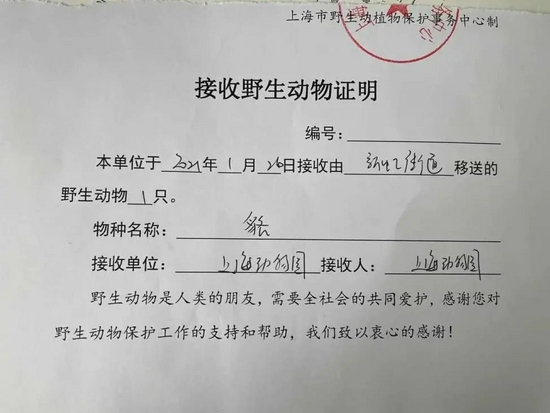 上海市野生动植物保护事务中心制
接收野生动物证明
编号:
本单位于2021年1月26日接收由新虹街道移送的
野生动物1只。
物种名称: 貉
接收单位: 上海动物园 接收人: 上海动物园
野生动物是人类的朋友,需要全社会的共同爱护,感谢您对
野生动物保护工作的支持和帮助,我们致以衷心的感谢!